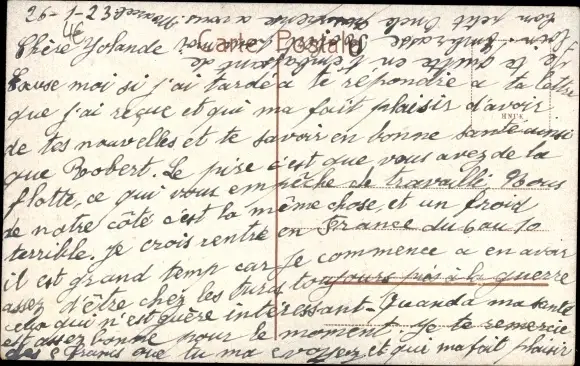 26-1-23
4€
Carte Postale
Chère Yolande
Escuse moi si j'ai tardé a te répondre a ta lettre
que j'ai reçue et qui ma fait plaisir d'avoir
de tes nouvelles et te savoir en bonne santé ainsi
que Robert. Le pire c'est que vous avez de la
flotte, ce qui vous empêche de travaillé. Nous
de notre côté c'est la même chose et un froid
terrible. Je crois rentré en France du 6 au 10
il est grand temp car je commence a en avoir
assez d'être chez les toujours à la guerre
qui n'est guère intéressant. Quand a ma santé
est assez bonne pour le moment. Je te remercie
des 5 francs que tu ma envoyez et qui ma fait plaisir
Je te quitte en t'embrassant de
loin.
ton petit Oncle
Marcel